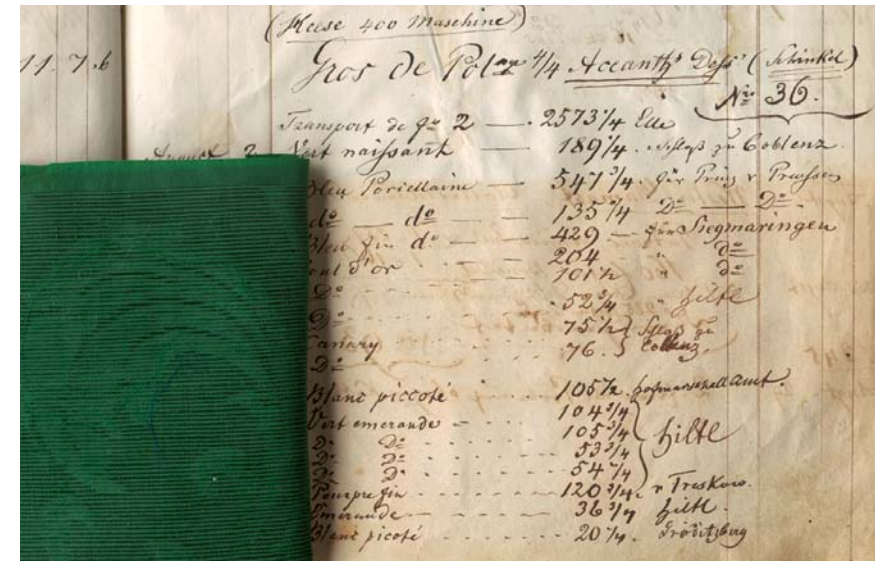 (Reese 400 Maschine)
11. 7. 6
Gros de Pol 4/4 Accanth Dess (Schinkel)
No 36.
Transport de 2 — 2573 1/4 Elle
August 2 Vert naissant — 189 1/4 Schloß zu Coblenz.
Bleu Porcellaine — 547 3/4 für Prinz v Preussen
do — do — 135 3/4 Do — Do
Bleu fin do — 429 — für Siegmaringen
d'or 204 " do
Do 101 1/2 " do
Do 52 3/4 " Hiltl
Canary 75 1/2 } Schloß zu
Do 76. } Coblenz.
Blanc piccoté 105 1/2 Hofmarschall Amt.
Vert emeraude 104 3/4
Do Do 105 3/4 Hiltl
Do Do 53 3/4
Do Do 54
Pourpre fin 120 3/4 v Treskow.
Emeraude 36 3/4 Hiltl.
Blanc picoté 20 Gröditzberg